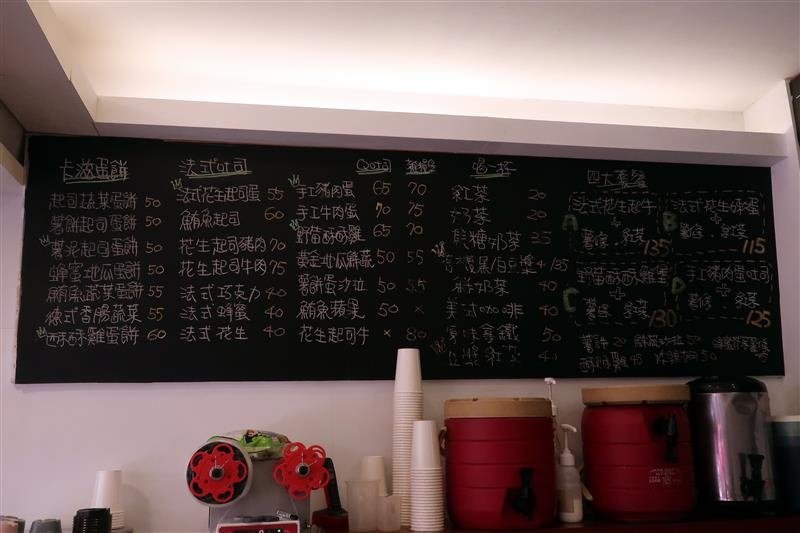 卡滋蛋餅
起司蔬菜蛋餅 50
薯餅起司蛋餅 50
薯泥起司蛋餅 50
蜂蜜地瓜蛋餅 50
鮪魚蔬菜蛋餅 55
德式香腸蔬菜 55
酥酥雞蛋餅 60
法式吐司
法式花生起司蛋 55
鮪魚起司 60
花生起司豬肉 70
花生起司牛肉 75
法式巧克力 40
法式蜂蜜 40
法式花生 40
Q吐司
手工豬肉蛋 65 70
手工牛肉蛋 70 75
野菇酥酥雞 65 70
黃金地瓜鮮蔬 50 55
薯餅蛋沙拉 50 55
鮪魚蘋果 50 ×
花生起司牛 × 80
喝一杯
紅茶 20
奶茶 20
奶茶 35
黑/白豆漿 /35
奶茶 40
美式咖啡 40
拿鐵 50
紅茶 40
四大套餐
A 法式花生起司牛
+
薯條、紅茶 135
B 法式花生酥蛋
薯條、紅茶 115
C 野菇酥酥雞堡
+
薯條、紅茶 130
D 手工豬肉蛋吐司
+
薯條、紅茶 125
薯餅 20
50